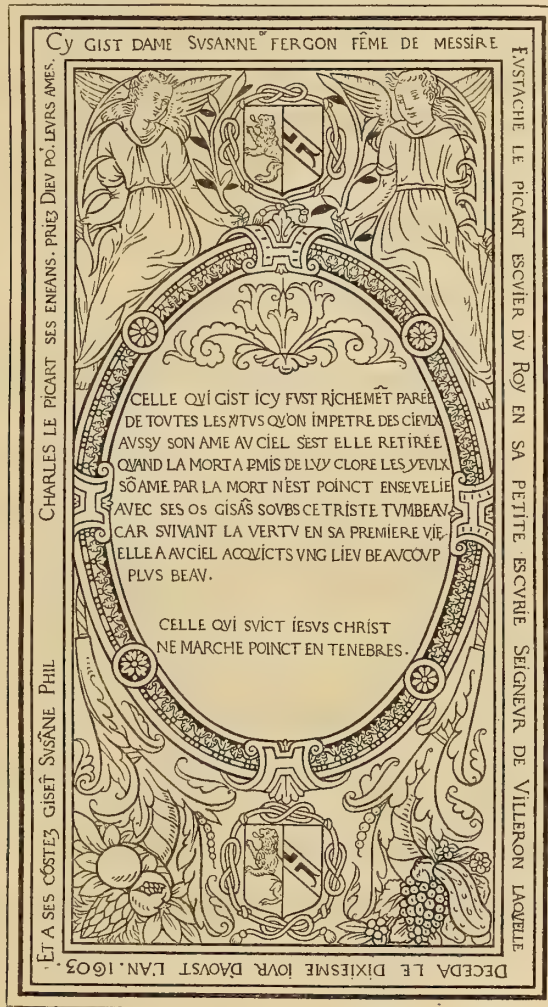 CY GIST DAME SVSANNE DE FERGON FÊME DE MESSIRE
EVSTACHE LE PICART ESCVIER DV ROY EN SA PETITE ESCVRIE SEIGNEVR DE VILLERON LAQVELLE
DECEDA LE DIXIESME IOVR D'AOVST L'AN. 1603.
ET A SES CÔSTEZ GISET̃ SVSÂNE PHIL
CHARLES LE PICART SES ENFANS. PRIEZ DIEV PO.' LEVRS AMES.
CELLE QVI GIST ICY FVST RICHEMẼT PARÉE
DE TOVTES LES VTVS QV'ON IMPETRE DES CIEVLX
AVSSY SON AME AV CIEL S'EST ELLE RETIRÉE
QVAND LA MORT A PMIS DE LVY CLORE LES YEVLX
SÔ AME PAR LA MORT N'EST POINCT ENSEVELIE
AVEC SES OS GISÃS SOVBS CE TRISTE TVMBEAV
CAR SVIVANT LA VERTV EN SA PREMIERE VIE
ELLE A AV CIEL ACQVICTS VNG LIEV BEAVCOVP
PLVS BEAV.
CELLE QVI SVICT IESVS CHRIST
NE MARCHE POINCT EN TENEBRES.